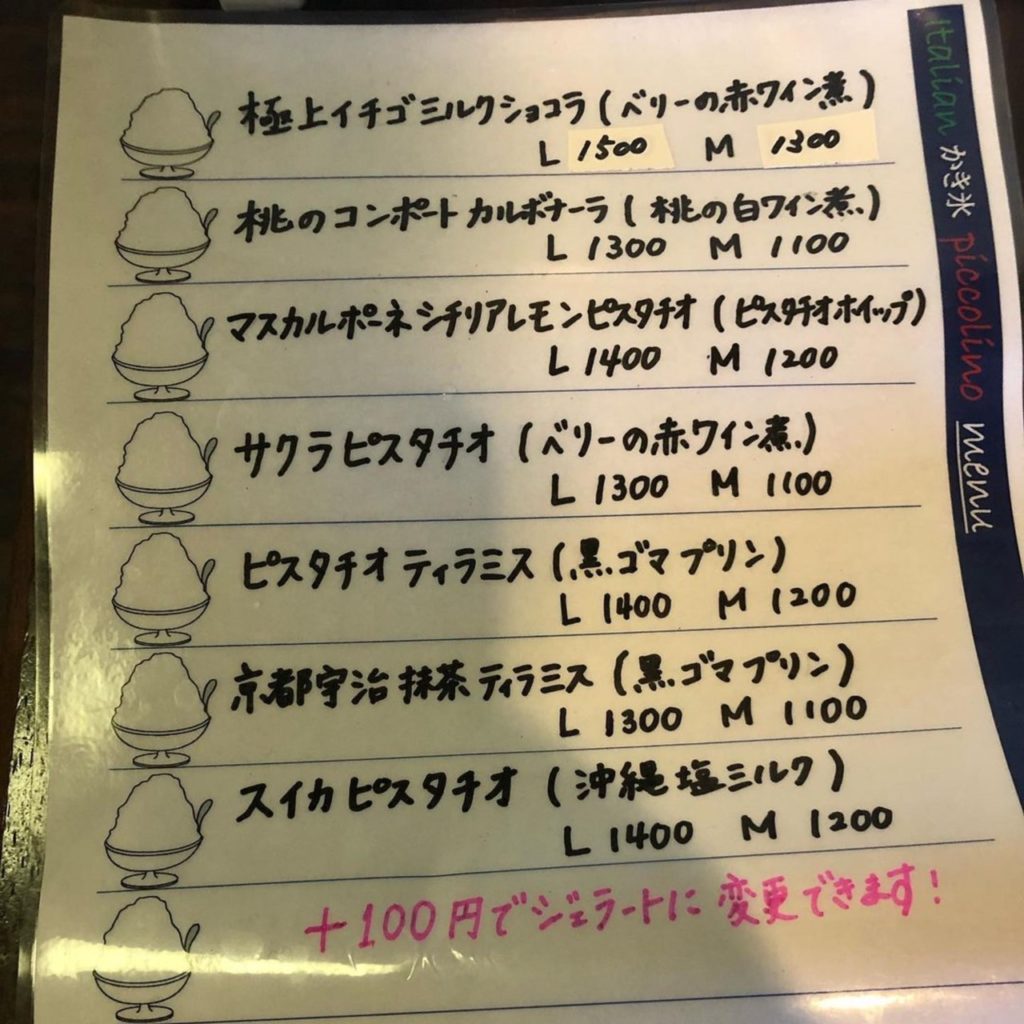 Italian かき氷 piccolino menu
極上イチゴミルクショコラ(ベリーの赤ワイン煮)
L 1500 M 1300
桃のコンポートカルボナーラ(桃の白ワイン煮)
L 1300 M 1100
マスカルポーネシチリアレモンピスタチオ(ピスタチオホイップ)
L 1400 M 1200
サクラピスタチオ(ベリーの赤ワイン煮)
L 1300 M 1100
ピスタチオティラミス(黒ゴマプリン)
L 1400 M 1200
京都宇治抹茶ティラミス(黒ゴマプリン)
L 1300 M 1100
スイカピスタチオ(沖縄塩ミルク)
L 1400 M 1200
+100円でジェラートに変更できます!